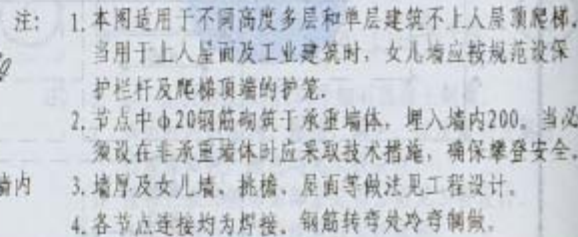 注: 1. 本图适用于不同高度多层和单层建筑不上人屋顶爬梯.
当用于上人屋面及工业建筑时, 女儿墙应按规范设保
护栏杆及爬梯顶端的护笼.
2. 节点中ф20钢筋砌筑于承重墙体, 埋入墙内200。当必
须设在非承重墙体时应采取技术措施, 确保攀登安全。
墙内 3. 墙厚及女儿墙、挑檐、屋面等做法见工程设计.
4. 各节点连接均为焊接。钢筋转弯处冷弯制做。